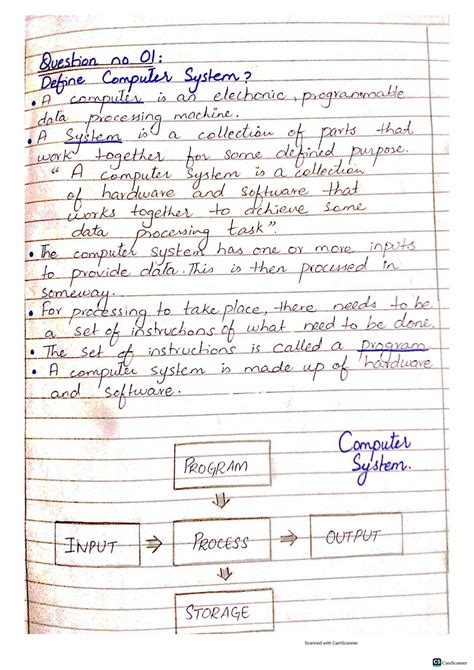 Question no 01:
Define Computer System?
• A computer is an electronic, programmable
data processing machine.
• A System is a collection of parts that
work together for some defined purpose.
" A computer system is a collection
of hardware and software that
works together to achieve some
data processing task".
• The computer system has one or more inputs
to provide data. This is then processed in
someway.
• For processing to take place, there needs to be
a set of instructions of what need to be done.
• The set of instructions is called a program
• A computer system is made up of hardware
and software.
Computer
System.
PROGRAM
INPUT ⇒ PROCESS ⇒ OUTPUT
STORAGE
Scanned with CamScanner
CS CamScanner